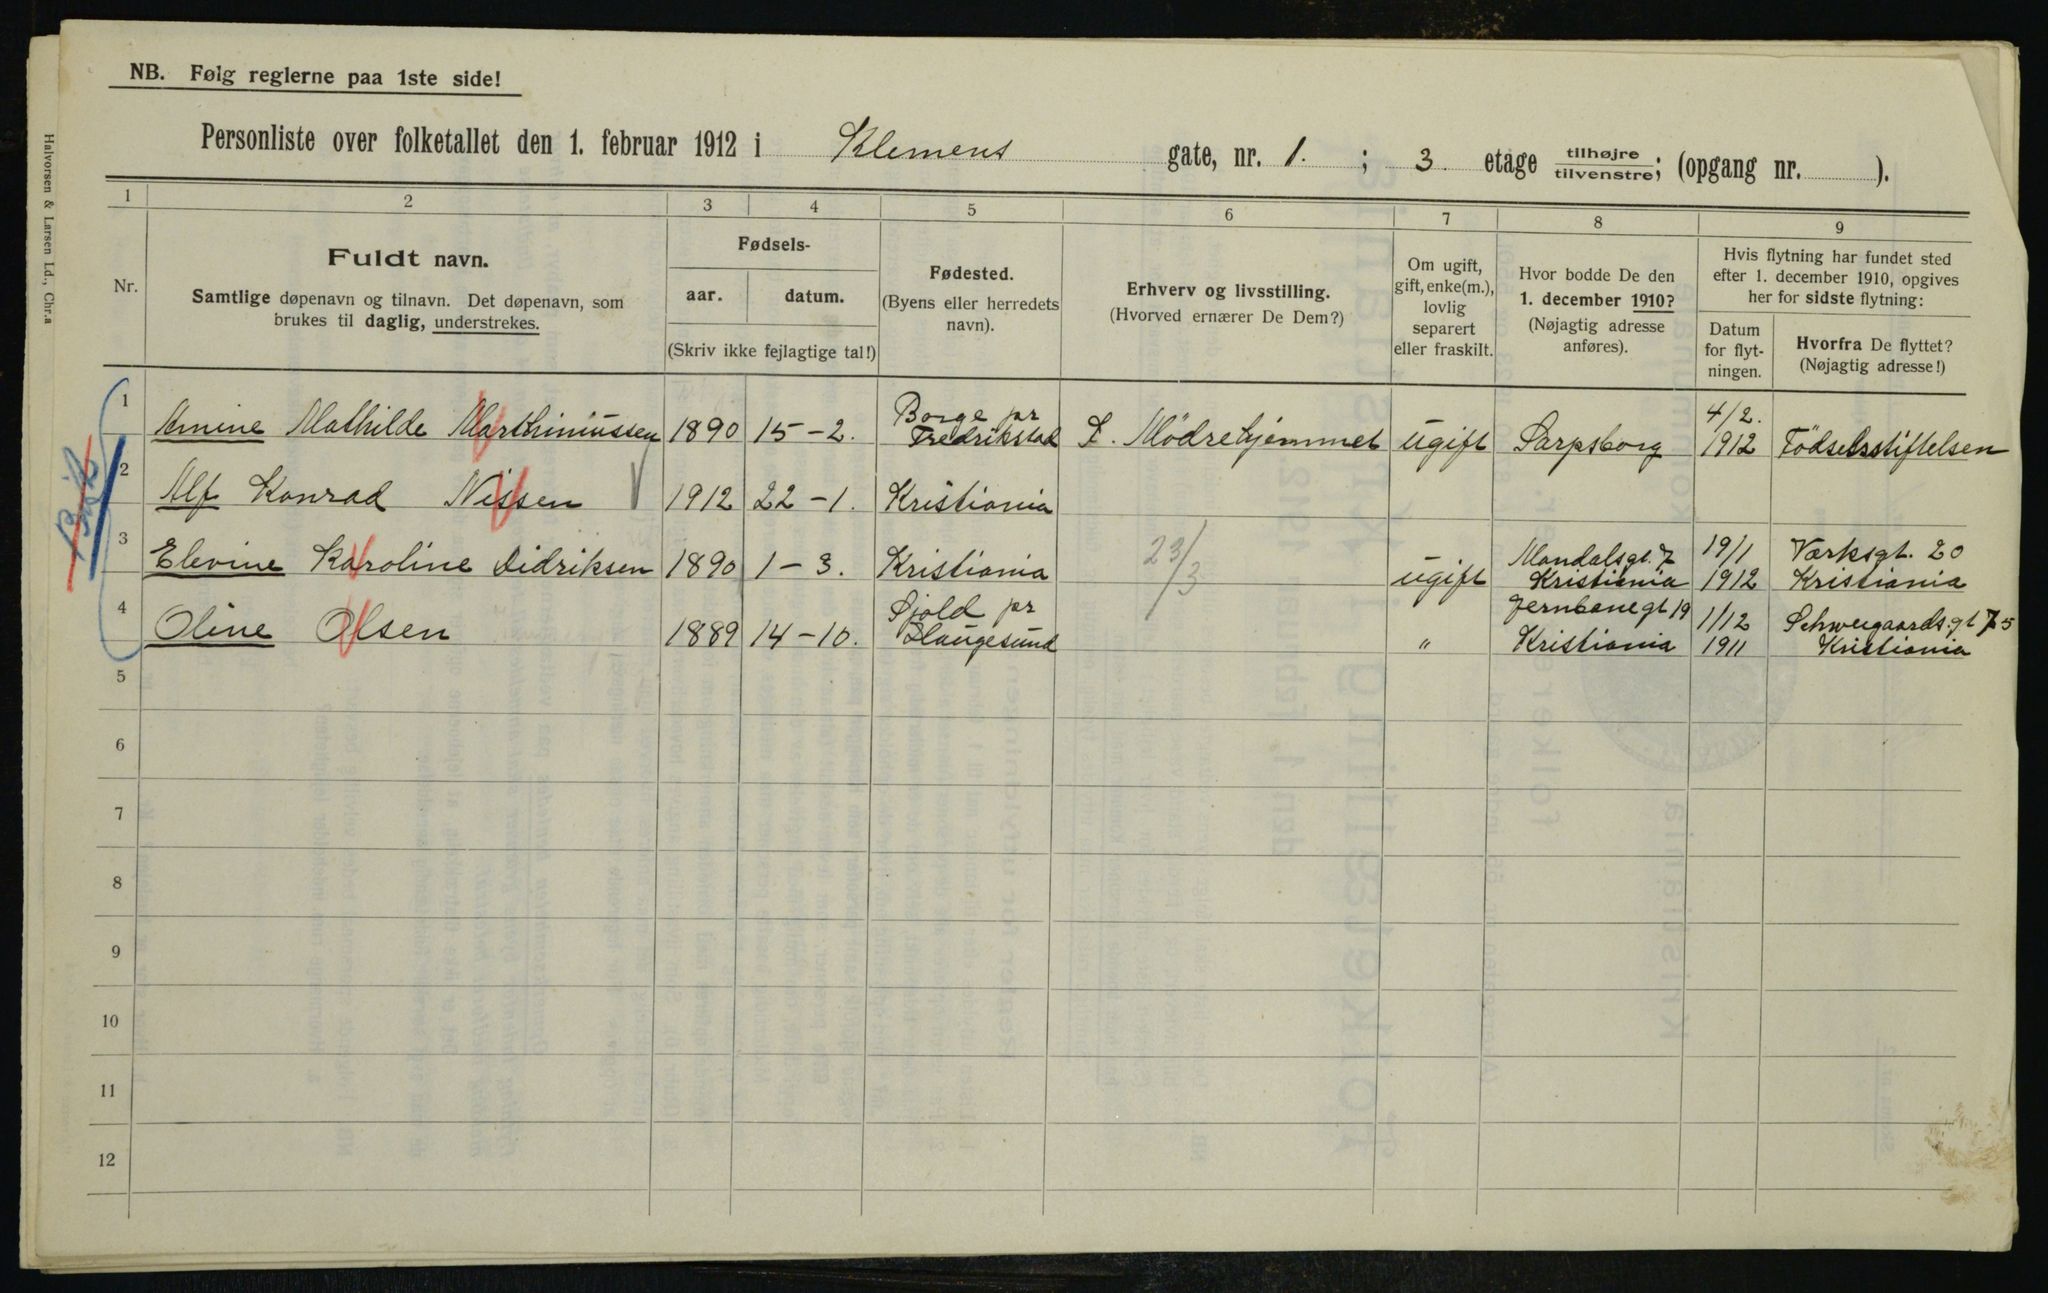 NB. Følg reglerne paa 1ste side!
Personliste over folketallet den 1. februar 1912 i Klemens gate, nr. 1. ; 3 etage tilhøjre/tilvenstre; (opgang nr. ).
Halvorsen & Larsen Ld., Chr.a
1 2 3 4 5 6 7 8 9
Nr.
Fuldt navn.
Samtlige døpenavn og tilnavn. Det døpenavn, som
brukes til daglig, understrekes.
Fødsels-
aar. datum.
(Skriv ikke fejlagtige tal!)
Fødested.
(Byens eller herredets
navn).
Erhverv og livsstilling.
(Hvorved ernærer De Dem?)
Om ugift,
gift, enke(m.),
lovlig
separert
eller fraskilt.
Hvor bodde De den
1. december 1910?
(Nøjagtig adresse
anføres).
Hvis flytning har fundet sted
efter 1. december 1910, opgives
her for sidste flytning:
Datum
for flyt-
ningen.
Hvorfra De flyttet?
(Nøjagtig adresse!)
1 Amine Mathilde Marthinussen 1890 15-2. Borge pr Fredrikstad S. Mödrehjemmet ugift Sarpsborg 4/2. 1912 Födselsstiftelsen
2 Alf Konrad Nissen 1912 22-1. Kristiania
3 Elevine Karoline Didriksen 1890 1-3. Kristiania 23/3 ugift Mandalsgt. 7 Kristiania 19/1 1912 Værksgt. 20 Kristiania
4 Oline Olsen 1889 14-10. Sjold pr Haugesund " Jernbanegt 19 Kristiania 1/12 1911 Schweigaardsgt 75 Kristiania
5
6
7
8
9
10
11
12